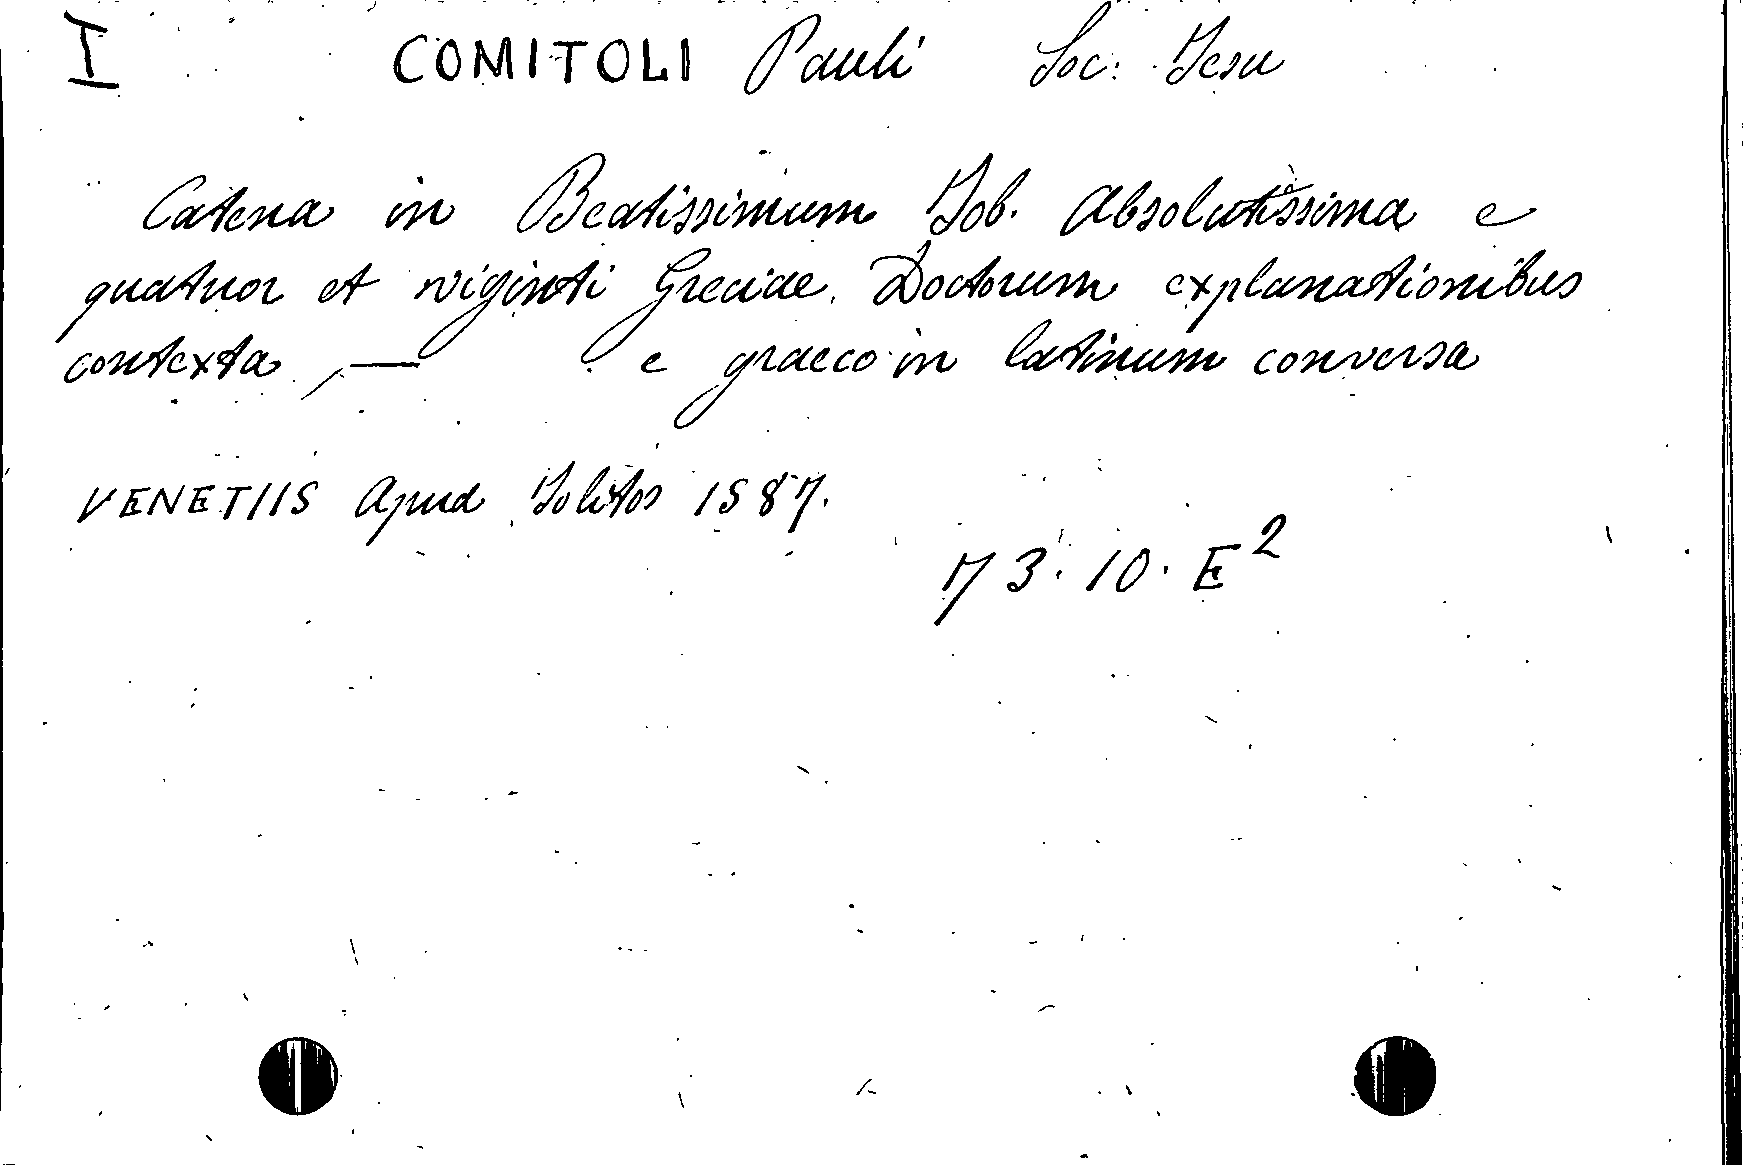 I COMITOLI Pauli Soc: Iesu
Catena in Beatissimum Iob. Absolutissima e
quatuor et viginti Greciae Doctorum explanationibus
contexta, — e graeco in latinum conversa
VENETIIS Apud Iolitos 1587.
73. 10. E²